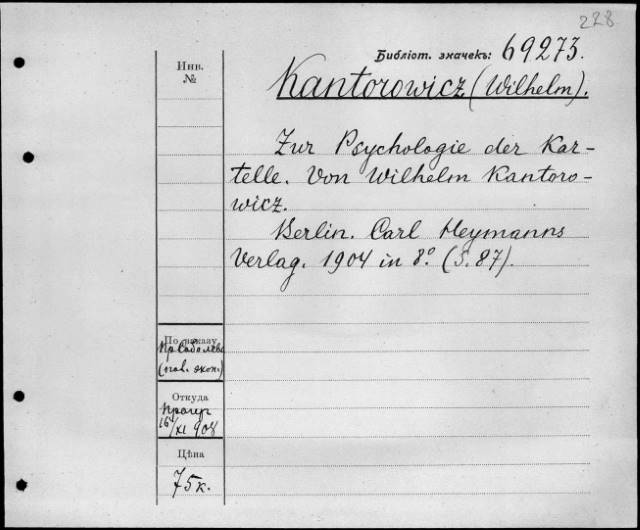 228
Библіот. значекъ: 69273.
Инв.
№
Kantorowicz (Wilhelm).
Zur Psychologie der Kar-
telle. Von Wilhelm Kantoro-
wicz.
Berlin. Carl Heymanns
Verlag. 1904 in 8° (S. 87).
По заказу
(пол. экон.)
Откуда
Прагер
16/XI 908
Цѣна
75 к.